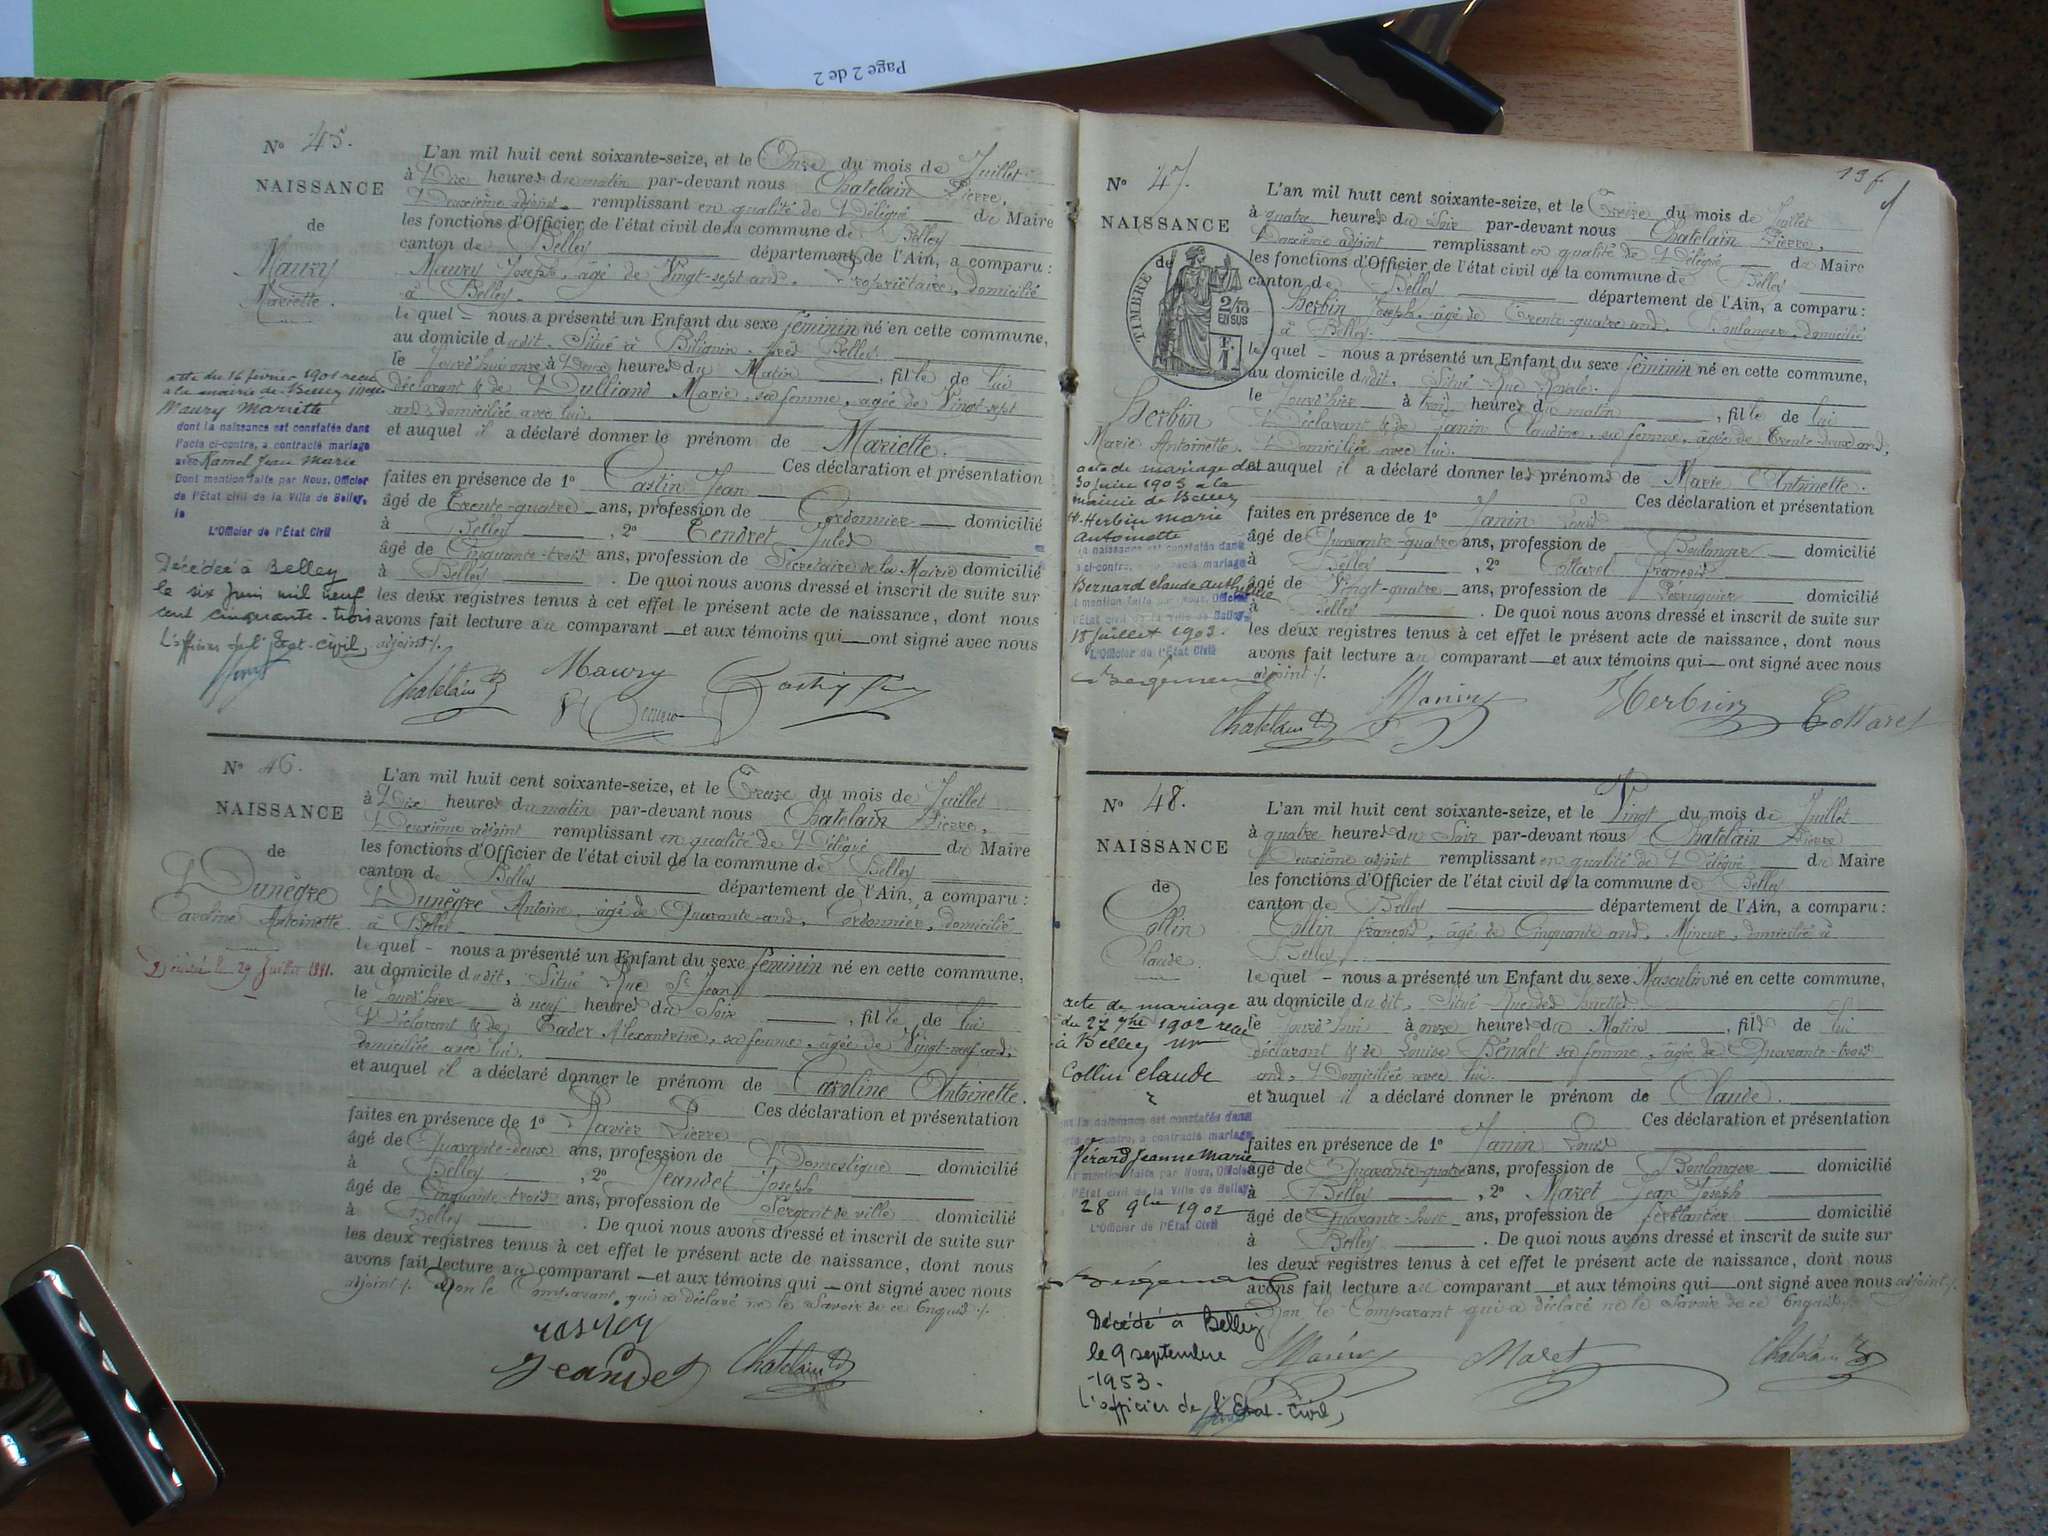 Page 2 de 2
N° 45.
NAISSANCE
de
Maury
Mariette.
L'an mil huit cent soixante-seize, et le Onze du mois de Juillet
à Dix heures du matin par-devant nous Chatelain Pierre,
Deuxième adjoint remplissant en qualité de Délégué du Maire
les fonctions d'Officier de l'état civil de la commune de Belley
canton de Belley département de l'Ain, a comparu :
Maury Joseph, âgé de Vingt-sept ans, Propriétaire, domicilié
à Belley.
lequel nous a présenté un Enfant du sexe féminin né en cette commune,
au domicile dudit, Situé à Billignin, près Belley
le Jourd'hui onze à Deux heures du Matin, fille de lui
déclarant & de Marie, sa femme, âgée de Vingt-sept
ans, domiciliée avec lui.
et auquel il a déclaré donner le prénom de Mariette.
Ces déclaration et présentation
faites en présence de 1° Castin Jean
âgé de Trente-quatre ans, profession de Cordonnier domicilié
à Belley, 2° Tendret Jules
âgé de Cinquante-trois ans, profession de Secrétaire de la Mairie domicilié
à Belley. De quoi nous avons dressé et inscrit de suite sur
les deux registres tenus à cet effet le présent acte de naissance, dont nous
avons fait lecture au comparant et aux témoins qui ont signé avec nous
adjoint ./.
acte du 16 février 1901 reçu
à la mairie de Belley
Maury Mariette
dont la naissance est constatée dans
l'acte ci-contre, a contracté mariage
avec Ramel Jean Marie
Dont mention faite par Nous, Officier
de l'État civil de la Ville de Belley,
le
L'Officier de l'État Civil
Décédée à Belley
le six Juin mil neuf
cent cinquante-trois
L'officier de l'Etat-civil,
Chatelain Maury
N° 46.
NAISSANCE
de
Dunègre
Caroline Antoinette
Décédé le 29 Juillet 1941.
L'an mil huit cent soixante-seize, et le Treize du mois de Juillet
à Dix heures du matin par-devant nous Chatelain Pierre,
Deuxième adjoint remplissant en qualité de Délégué du Maire
les fonctions d'Officier de l'état civil de la commune de Belley
canton de Belley département de l'Ain, a comparu :
Dunègre Antoine, âgé de Quarante ans, Cordonnier, domicilié
à Belley
lequel nous a présenté un Enfant du sexe féminin né en cette commune,
au domicile dudit, Situé Rue St Jean
le Jour d'hier à neuf heures du Soir, fille de lui
Déclarant & de Alexandrine, sa femme, âgée de Vingt-neuf ans,
domiciliée avec lui.
et auquel il a déclaré donner le prénom de Caroline Antoinette.
Ces déclaration et présentation
faites en présence de 1° Pierre
âgé de Quarante-deux ans, profession de Domestique domicilié
à Belley, 2° Jeandet Joseph
âgé de Cinquante-trois ans, profession de Sergent de ville domicilié
à Belley. De quoi nous avons dressé et inscrit de suite sur
les deux registres tenus à cet effet le présent acte de naissance, dont nous
avons fait lecture au comparant et aux témoins qui ont signé avec nous
adjoint ./. Non le Comparant qui a déclaré ne le Savoir de ce Enquis ./.
Jeandet Chatelain
N° 47.
NAISSANCE
de
TIMBRE
2/10
EN SUS
Herbin
Marie Antoinette.
L'an mil huit cent soixante-seize, et le Treize du mois de Juillet
à quatre heures du Soir par-devant nous Chatelain Pierre,
Deuxième adjoint remplissant en qualité de Délégué du Maire
les fonctions d'Officier de l'état civil de la commune de Belley
canton de Belley département de l'Ain, a comparu :
Herbin Joseph, âgé de Trente-quatre ans, Boulanger, domicilié
à Belley.
lequel nous a présenté un Enfant du sexe féminin né en cette commune,
au domicile dudit, Situé Rue Royale.
le Jour d'hier à trois heures du matin, fille de lui
Déclarant & de Janin Claudine, sa femme, âgée de Trente-deux ans,
Domiciliée avec lui.
et auquel il a déclaré donner les prénoms de Marie Antoinette.
Ces déclaration et présentation
faites en présence de 1° Janin Louis
âgé de Quarante-quatre ans, profession de Boulanger domicilié
à Belley, 2° Cottaret françois
âgé de Vingt-quatre ans, profession de Perruquier domicilié
à Belley. De quoi nous avons dressé et inscrit de suite sur
les deux registres tenus à cet effet le présent acte de naissance, dont nous
avons fait lecture au comparant et aux témoins qui ont signé avec nous
adjoint ./.
acte de mariage du
30 juin 1903 à la
mairie de Belley
Herbin Marie
Antoinette
la naissance est constatée dans
ci-contre, a contracté mariage
Bernard Claude
mention faite par Nous, Officier
l'État civil de la Ville de Belley,
15 juillet 1903.
L'Officier de l'État Civil
Chatelain Janin Herbin Cottaret
N° 48.
NAISSANCE
de
Collin
Claude.
L'an mil huit cent soixante-seize, et le Vingt du mois de Juillet
à quatre heures du Soir par-devant nous Chatelain Pierre
Deuxième adjoint remplissant en qualité de Délégué du Maire
les fonctions d'Officier de l'état civil de la commune de Belley
canton de Belley département de l'Ain, a comparu :
Collin françois, âgé de Cinquante ans, Mineur, domicilié à
Belley
lequel nous a présenté un Enfant du sexe Masculin né en cette commune,
au domicile dudit, Situé Rue des
le Jourd'hui à onze heures du Matin, fils de lui
déclarant & de Louise Bendet sa femme, âgée de Quarante-trois
ans, Domiciliée avec lui.
et auquel il a déclaré donner le prénom de Claude.
Ces déclaration et présentation
faites en présence de 1° Janin Louis
âgé de Quarante-quatre ans, profession de Boulanger domicilié
à Belley, 2° Maret Jean Joseph
âgé de Quarante-huit ans, profession de ferblantier domicilié
à Belley. De quoi nous avons dressé et inscrit de suite sur
les deux registres tenus à cet effet le présent acte de naissance, dont nous
avons fait lecture au comparant et aux témoins qui ont signé avec nous adjoint,
Non le Comparant qui a déclaré ne le Savoir de ce Enquis ./.
acte de mariage
du 27 9bre 1902 reçu
à Belley
Collin Claude
la naissance est constatée dans
ci-contre, a contracté mariage
Vérard Jeanne Marie
mention faite par Nous, Officier
l'État civil de la Ville de Belley
28 9bre 1902
L'Officier de l'État Civil
Décédé à Belley
le 9 septembre
1953.
L'officier de l'Etat-Civil,
Janin Maret Chatelain